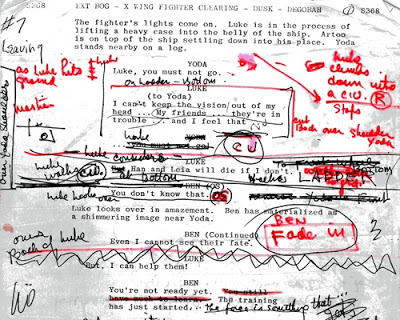 S368 EXT BOG - X WING FIGHTER CLEARING - DUSK - DEGOBAH S368
#7
The fighter's lights come on. Luke is in the process of
lifting a heavy case into the belly of the ship. Artoo
is on top of the ship settling down into his place. Yoda
stands nearby on a log.
Leaving
YODA
Luke, you must not go.
on Ladder - Bottom.
as Luke hits
ground
LUKE
(to Yoda)
I can't keep the vision out of my
head ... My friends ... they're in
trouble ... and I feel that
Luke
climbs
down into
a CU
Stops
R
cut
Back over shoulder
Yoda
YODA
you must not go!
CU
Luke considers
LUKE
Han and Leia will die if I don't.
Luke walks
bottom
LADDER
BEN (OS)
You don't know that.
OS
Luke looks over
Luke looks over in amazement. Ben has materialized as
a shimmering image near Yoda.
BEN
Fade in
BEN (Continued)
Even I cannot see their fate.
over
Back of Luke
LUKE
But, I can help them!
BEN
You're not ready yet. You still
have much to learn. The training
has just started... The force is something that ...